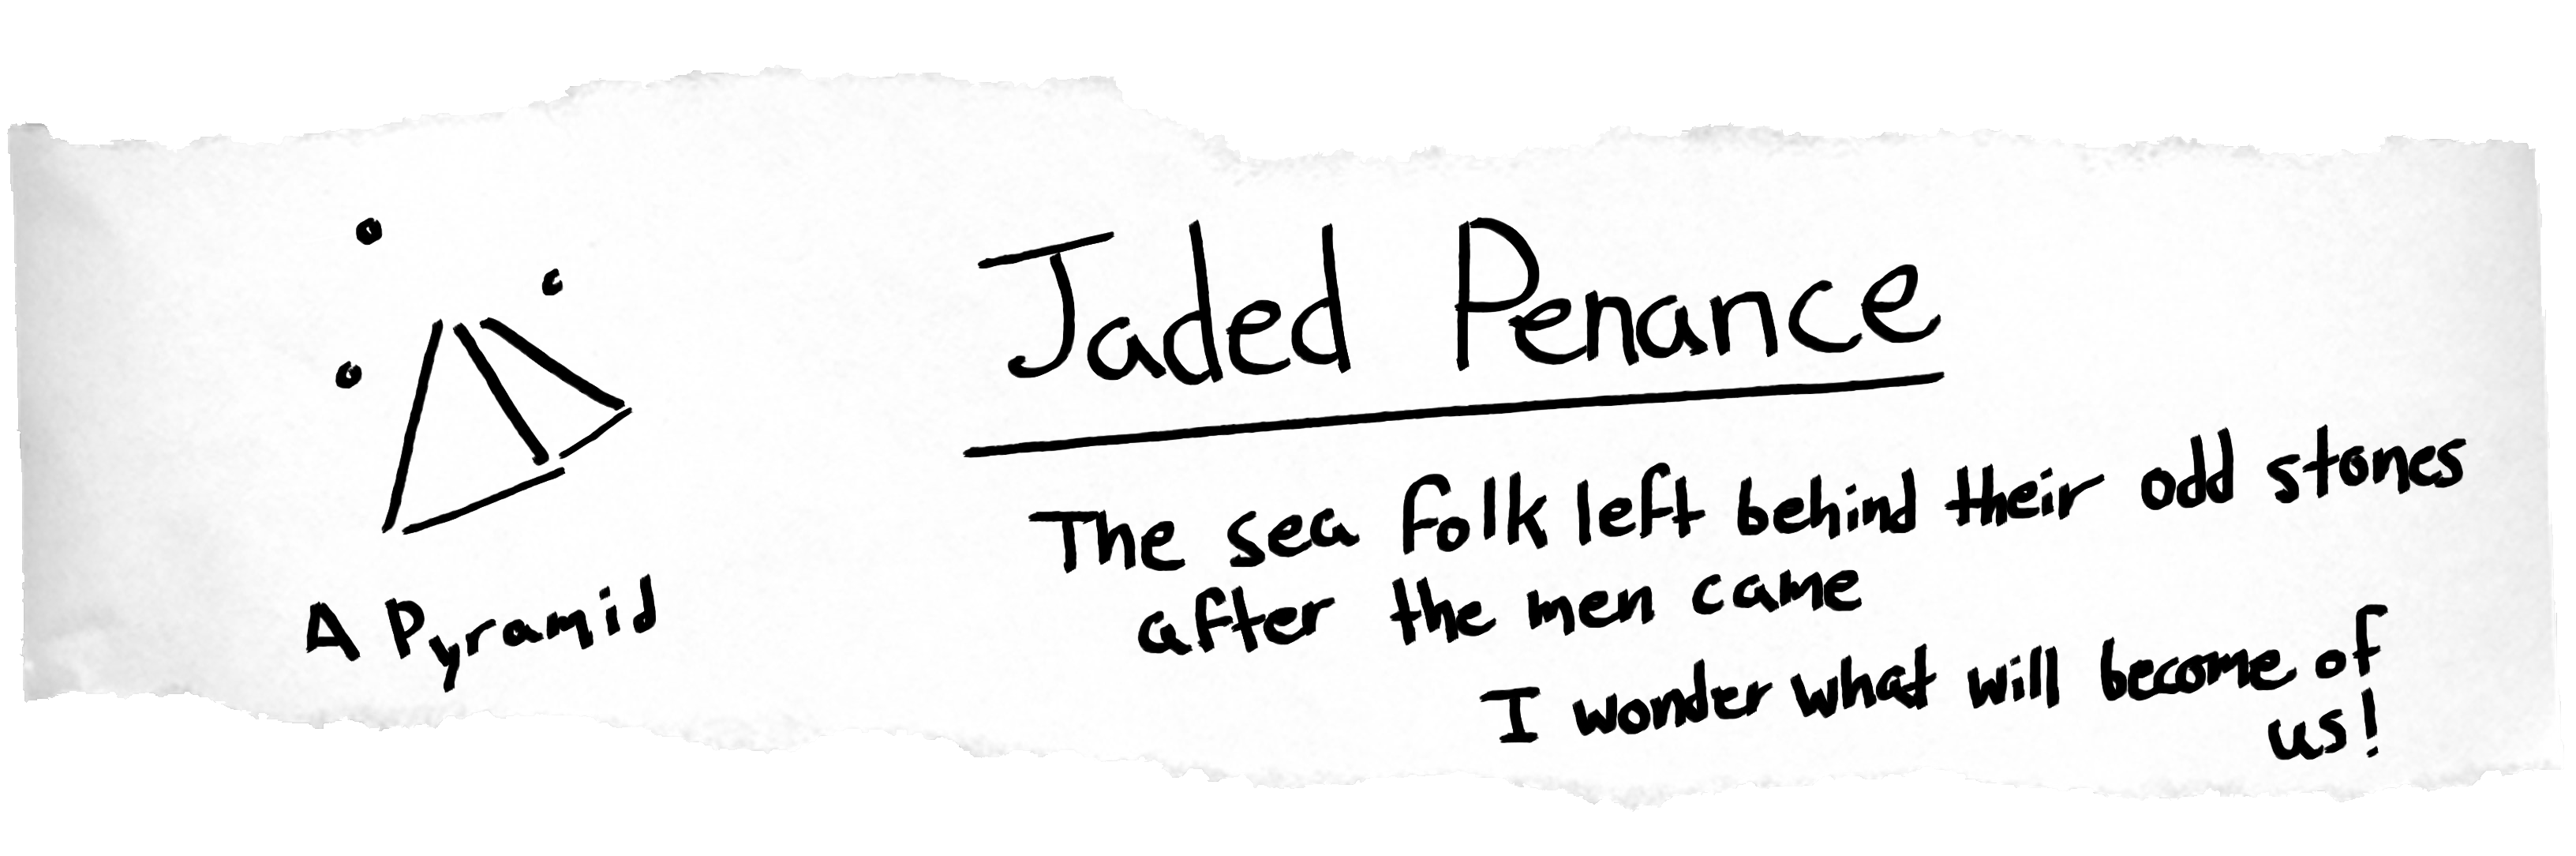 Jaded Penance
The sea folk left behind their odd stones
after the men came
I wonder what will become of
us!
A Pyramid